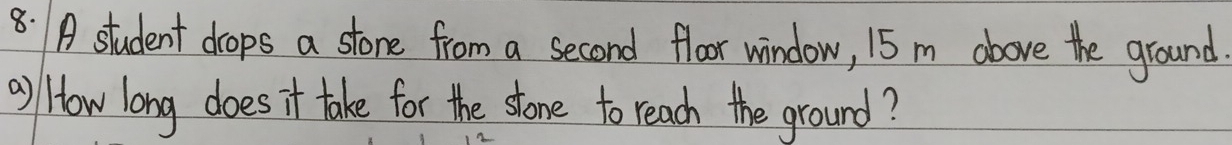 8. A student drops a stone from a second floor window, 15 m above the ground.
a) How long does it take for the stone to reach the ground?